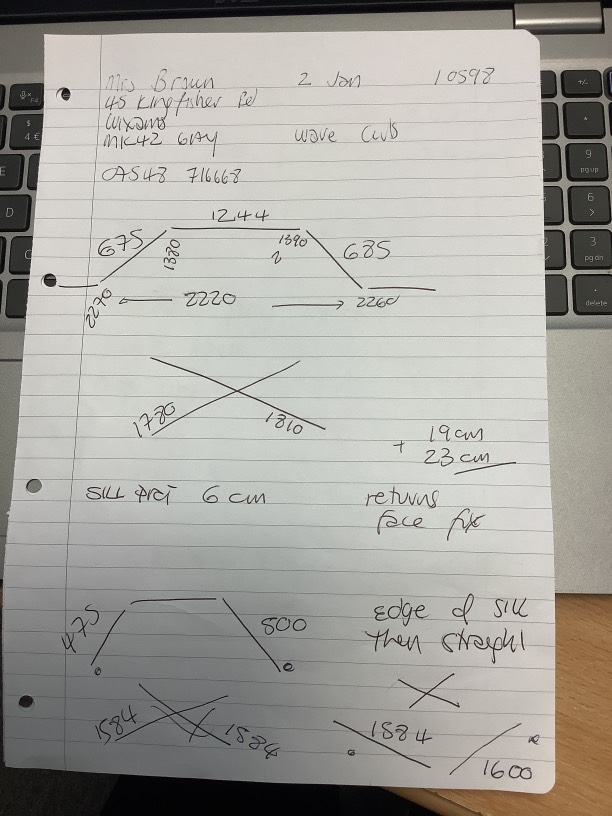 Mrs Brown 2 Jan 10598
45 Kingfisher Rd
Wixams
MK42 6AY wave Curls
07548 716668
1244
675 1380 1390 685
2270 2220 2260
1780 1810
+ 19cm
23cm
SILL 6 cm returns
face fix
475 800 edge of sill
then straight
1584 1584 1584
1600